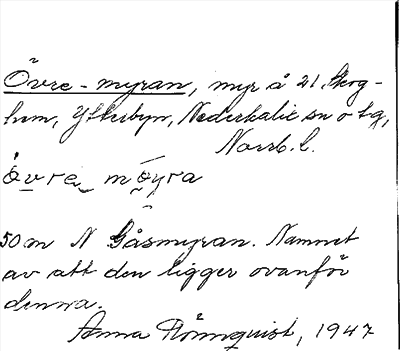 Övre-myran, myr å 21, Berg-
hem, Ytterbyn, Nederkalix sn o tg,
Norrb. l.
övre møyra
50 m N Gåsmyran. Namnet
av att den ligger ovanför
denna.
Anna Rönnquist, 1947